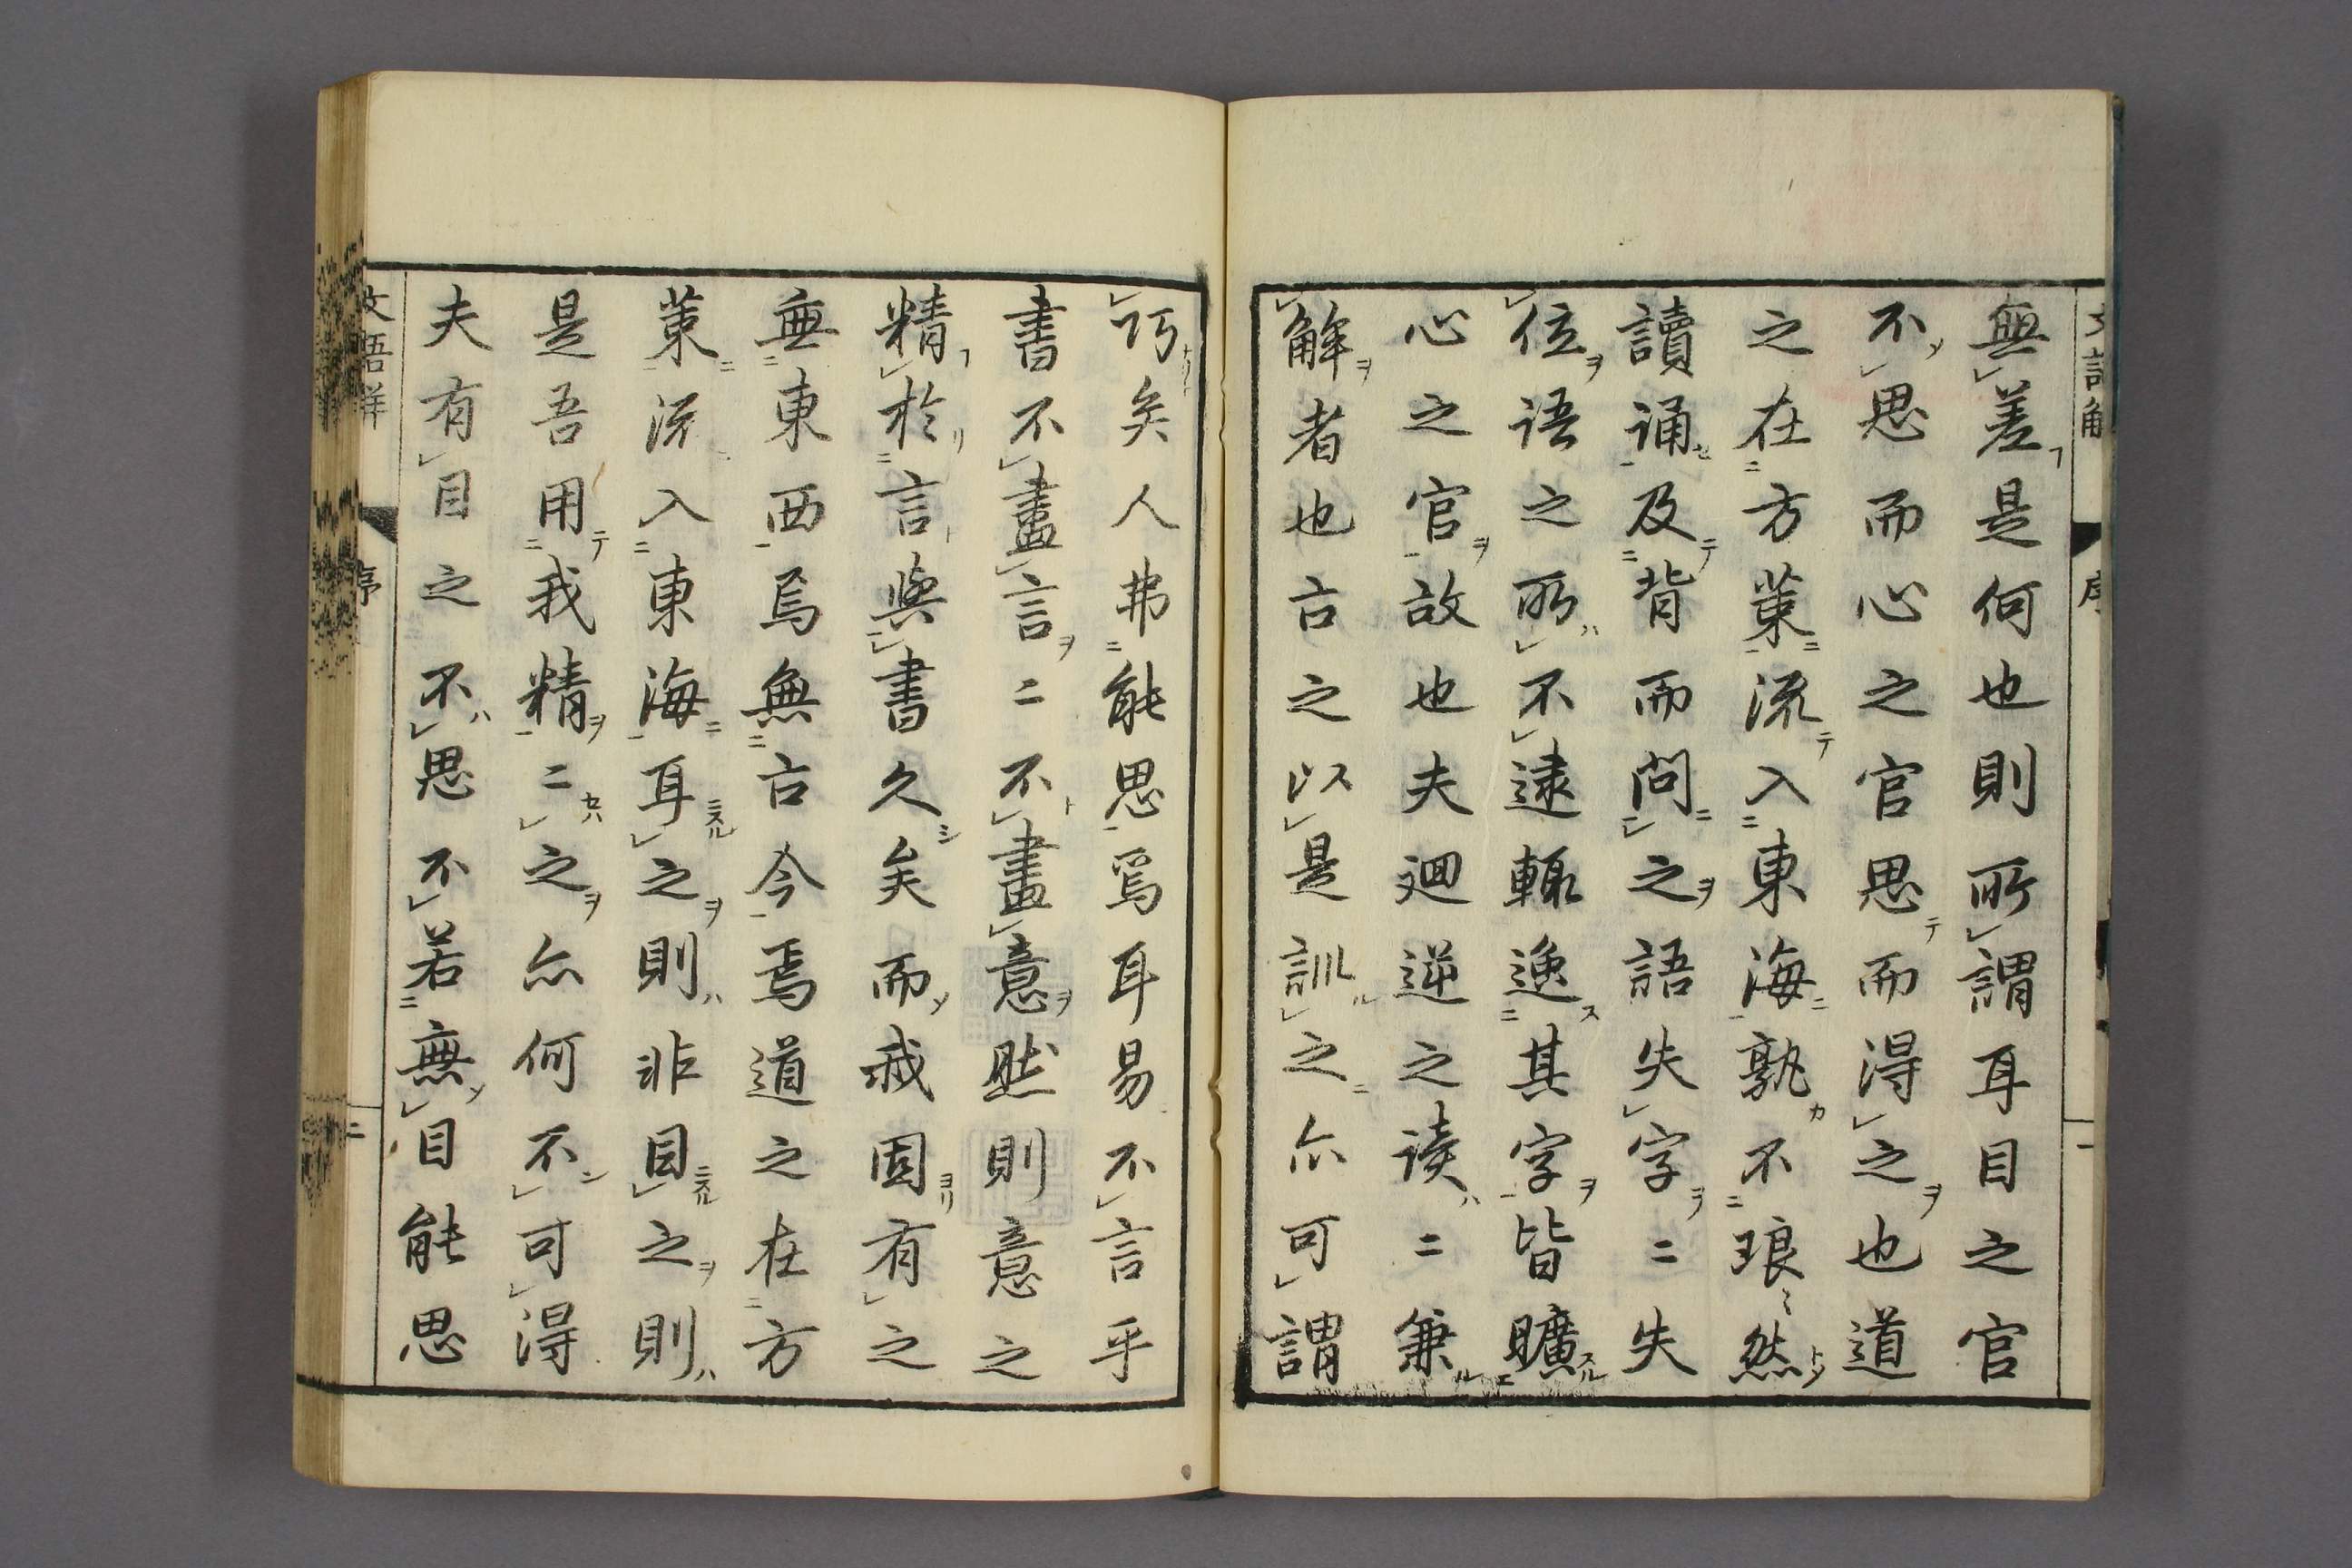 無差是何也則所謂耳目之官
不思而心之官思而得之也道
之在方策流入東海孰不琅〻然
讀誦及背而問之語失字二失
位语之所不逮輙逸其字皆曠
心之官故也夫廻逆之读二兼
解者也古之以是訓之亦可謂
訒矣人弗能思焉耳易不言乎
書不盡言二不盡意然則意之
精於言與書久矣而戒固有之
無東西焉無古今焉道之在方
策流入東海耳之則非目之則
是吾用我精二之亦何不可得
夫有目之不思不若無目能思
序
二